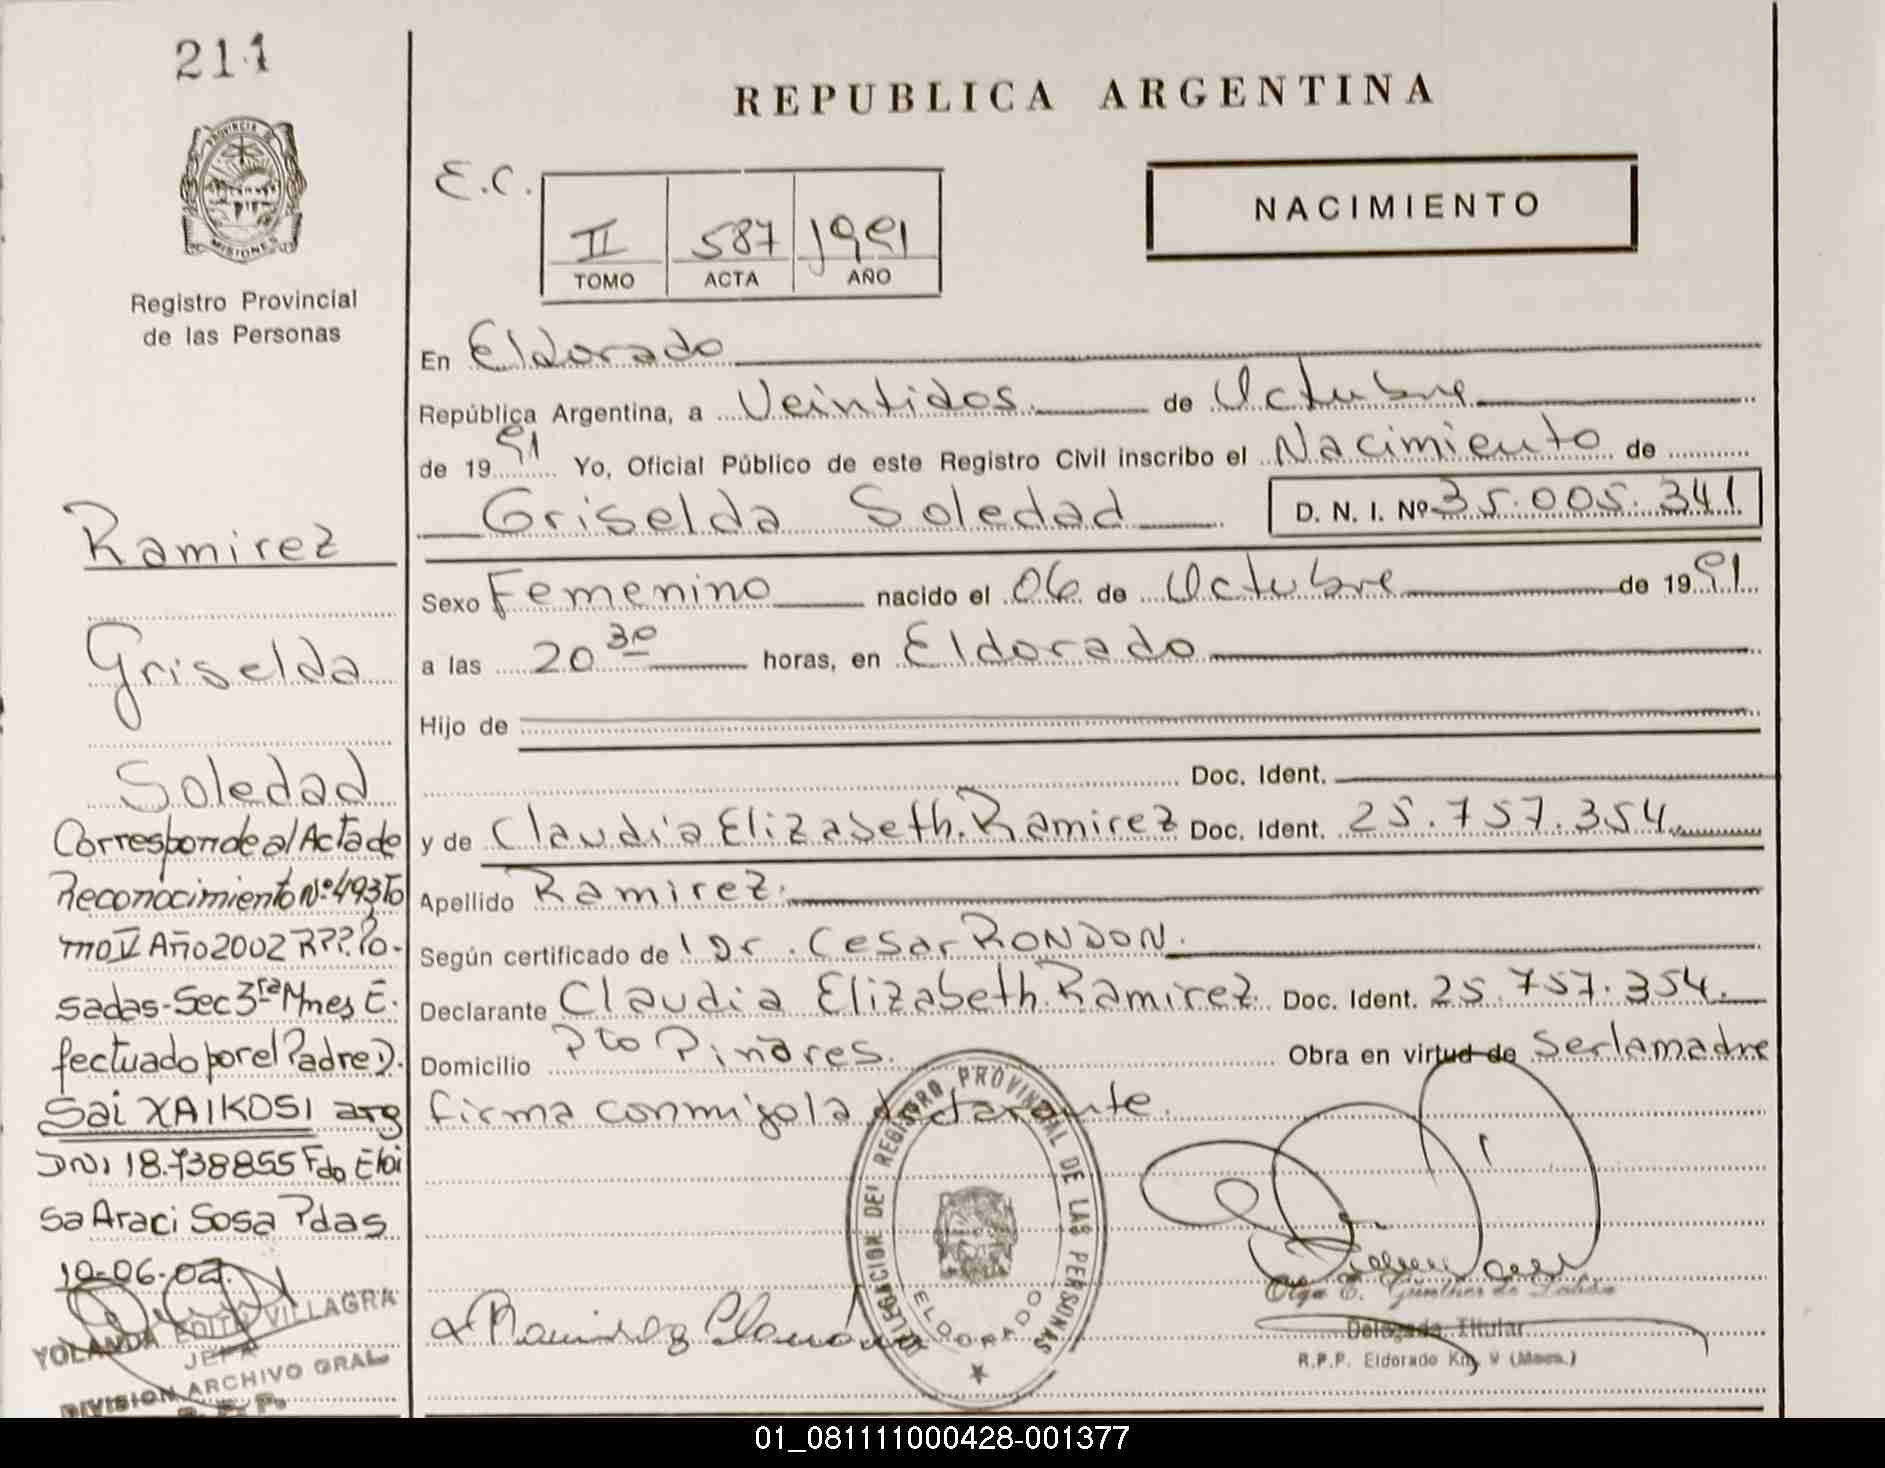 211
PROVINCIA DE
MISIONES
Registro Provincial
de las Personas
REPUBLICA ARGENTINA
E.C.
II 587 1991
TOMO ACTA AÑO
NACIMIENTO
En Eldorado
República Argentina, a Veintidos. de Octubre
de 1991 Yo, Oficial Público de este Registro Civil inscribo el Nacimiento de
Griselda Soledad D. N. I. Nº 35.005.341
Sexo Femenino nacido el 06 de Octubre de 1991
a las 20 30 horas, en Eldorado
Hijo de
Doc. Ident.
y de Claudia Elizabeth. Ramirez Doc. Ident. 25.757.354.
Apellido Ramirez.
Según certificado de Dr. Cesar RONDON.
Declarante Claudia Elizabeth Ramirez. Doc. Ident. 25.757.354.
Domicilio Pto Pinares. Obra en virtud de Ser la madre
firma conmigo la declarante.
Ramirez
Griselda
Soledad
Corresponde al Acta de
Reconocimiento Nº 493 To
mo V Año 2002 R?? Po-
sadas-Sec 3ra Mnes E.
fectuado por el Padre D.
Sai XAIKOSI arg
DNI 18.738855 Fdo Eloi
sa Araci Sosa Pdas
10-06-02.
YOLANDA EDITH VILLAGRA
JEFA
DIVISION ARCHIVO GRAL
R.P.P.
Ramirez Claudia
DELEGACION DEL REGISTRO PROVINCIAL DE LAS PERSONAS
ELDORADO
Olga E. Günther de
Delegada Titular
R.P.P. Eldorado Km. 9 (Mnes.)
01_081111000428-001377